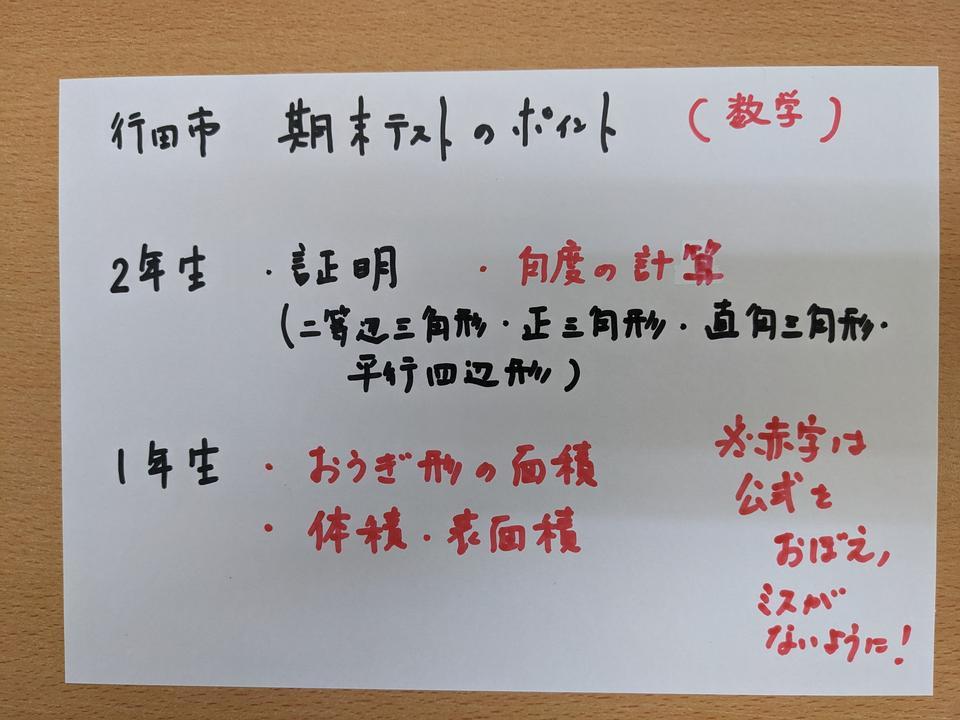 行田市 期末テストのポイント (数学)
2年生 ・証明 ・角度の計算
(二等辺三角形・正三角形・直角三角形・
平行四辺形)
1年生 ・おうぎ形の面積
・体積・表面積
※赤字は
公式を
おぼえ,
ミスが
ないように!